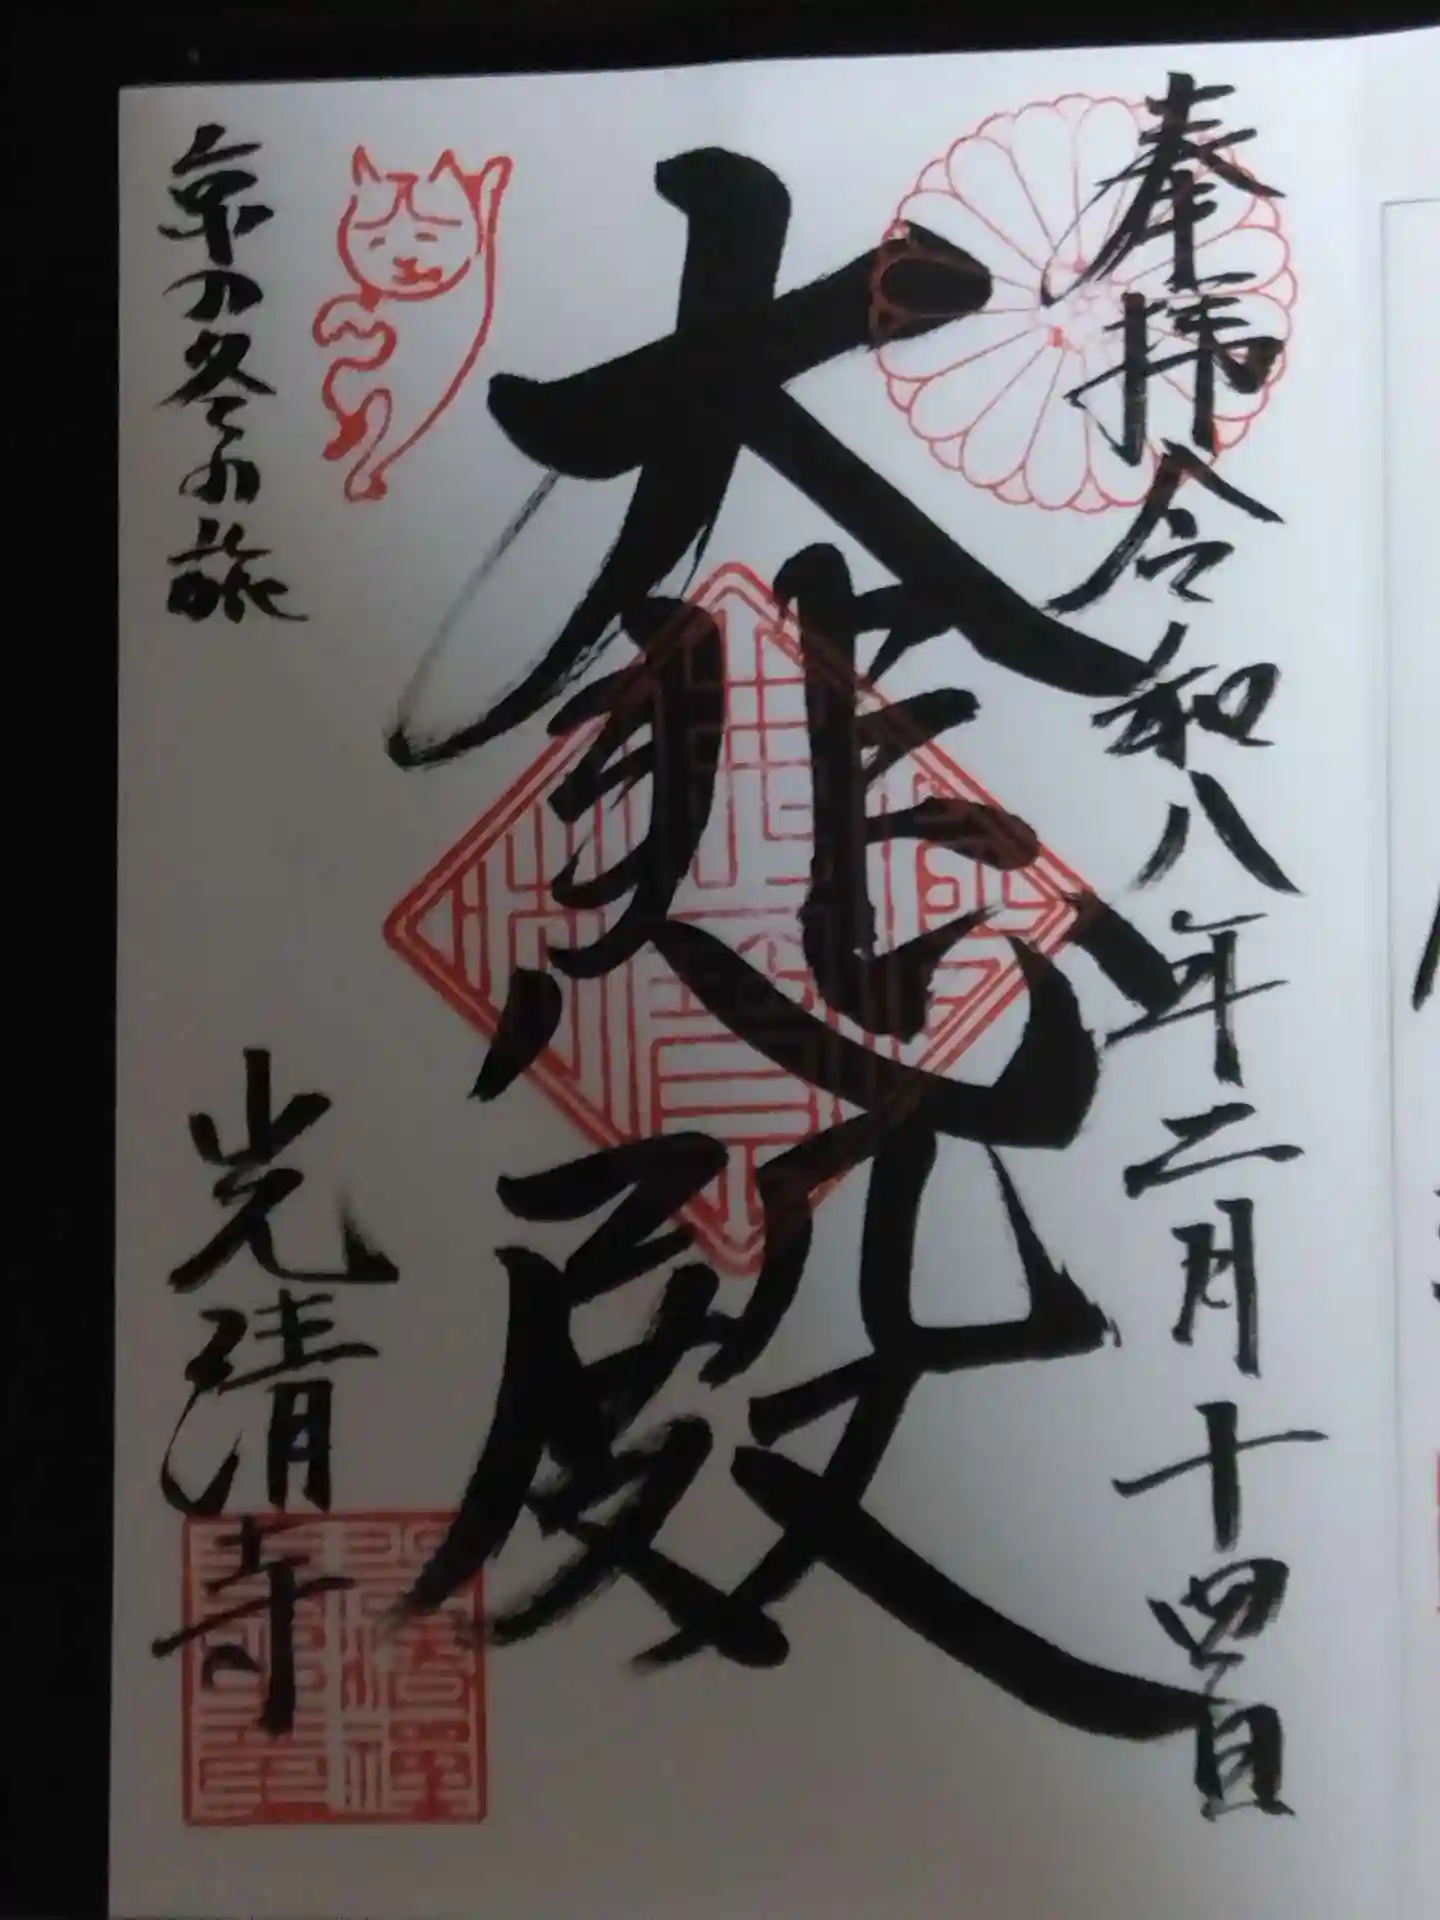 奉拝 令和八年二月十四日
大悲殿
京の冬の旅
光清寺